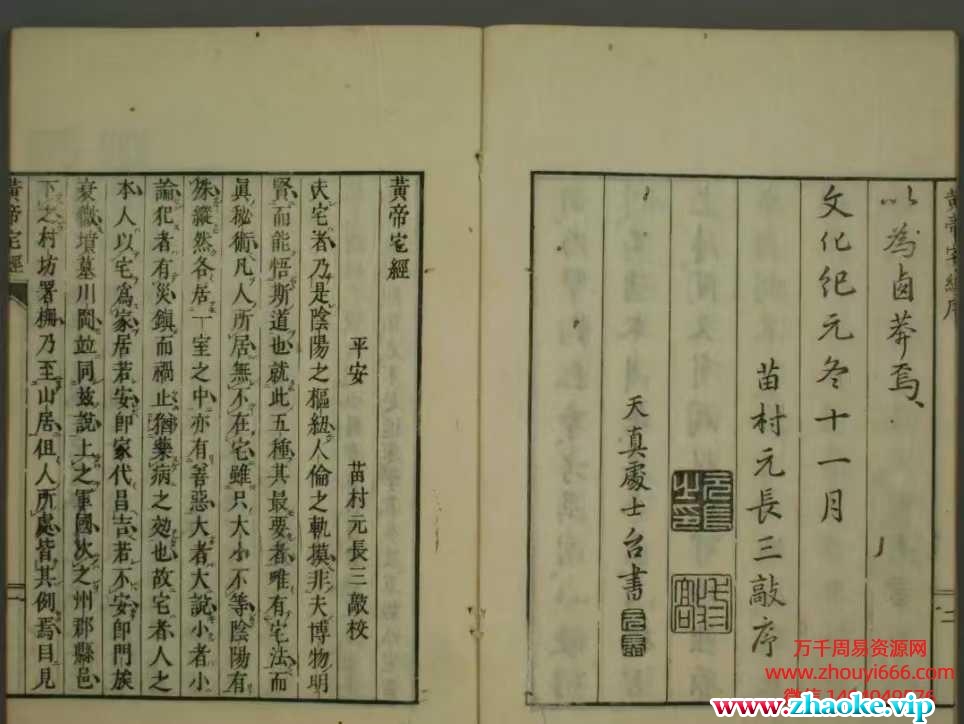 以為鹵莽焉
文化紀元冬十一月
苗村元長三敲序
天真處士台書
黃帝宅經
平安 苗村元長三敲校
夫宅者乃是陰陽之樞紐人倫之軌摸非夫博物明
賢而能悟斯道也就此五種其最要者唯有宅法而
眞秘術凡人所居無不在宅雖只大小不等陰陽有
殊縱然各居一室之中亦有善惡大者大說小者小
論犯者有災鎮而禍止猶藥病之効也故宅者人之
本人以宅爲家居若安即家代昌吉若不安即門族
衰微墳墓川岡並同兹說上之軍國次之州郡縣邑
下之村坊署柵乃至山居但人所處皆其例焉目見
黃帝宅經
一
万千周易资源网
www.zhouyi666.com
www.zhaoke.vip